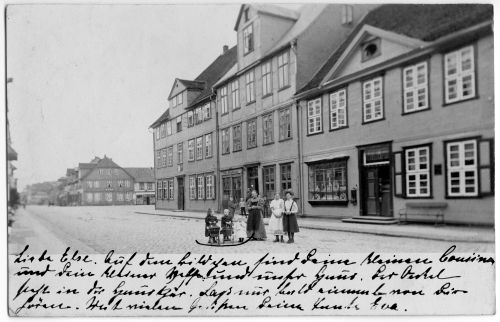 Liebe Else. Auf dem Bildchen sind Deine kleinen Cousinen
und Dein kleiner Neffe und unser Haus. Der Onkel
steht in der Haustür. Laß nur bald einmal von Dir
hören. Mit vielen Grüßen Deine Tante Eva.